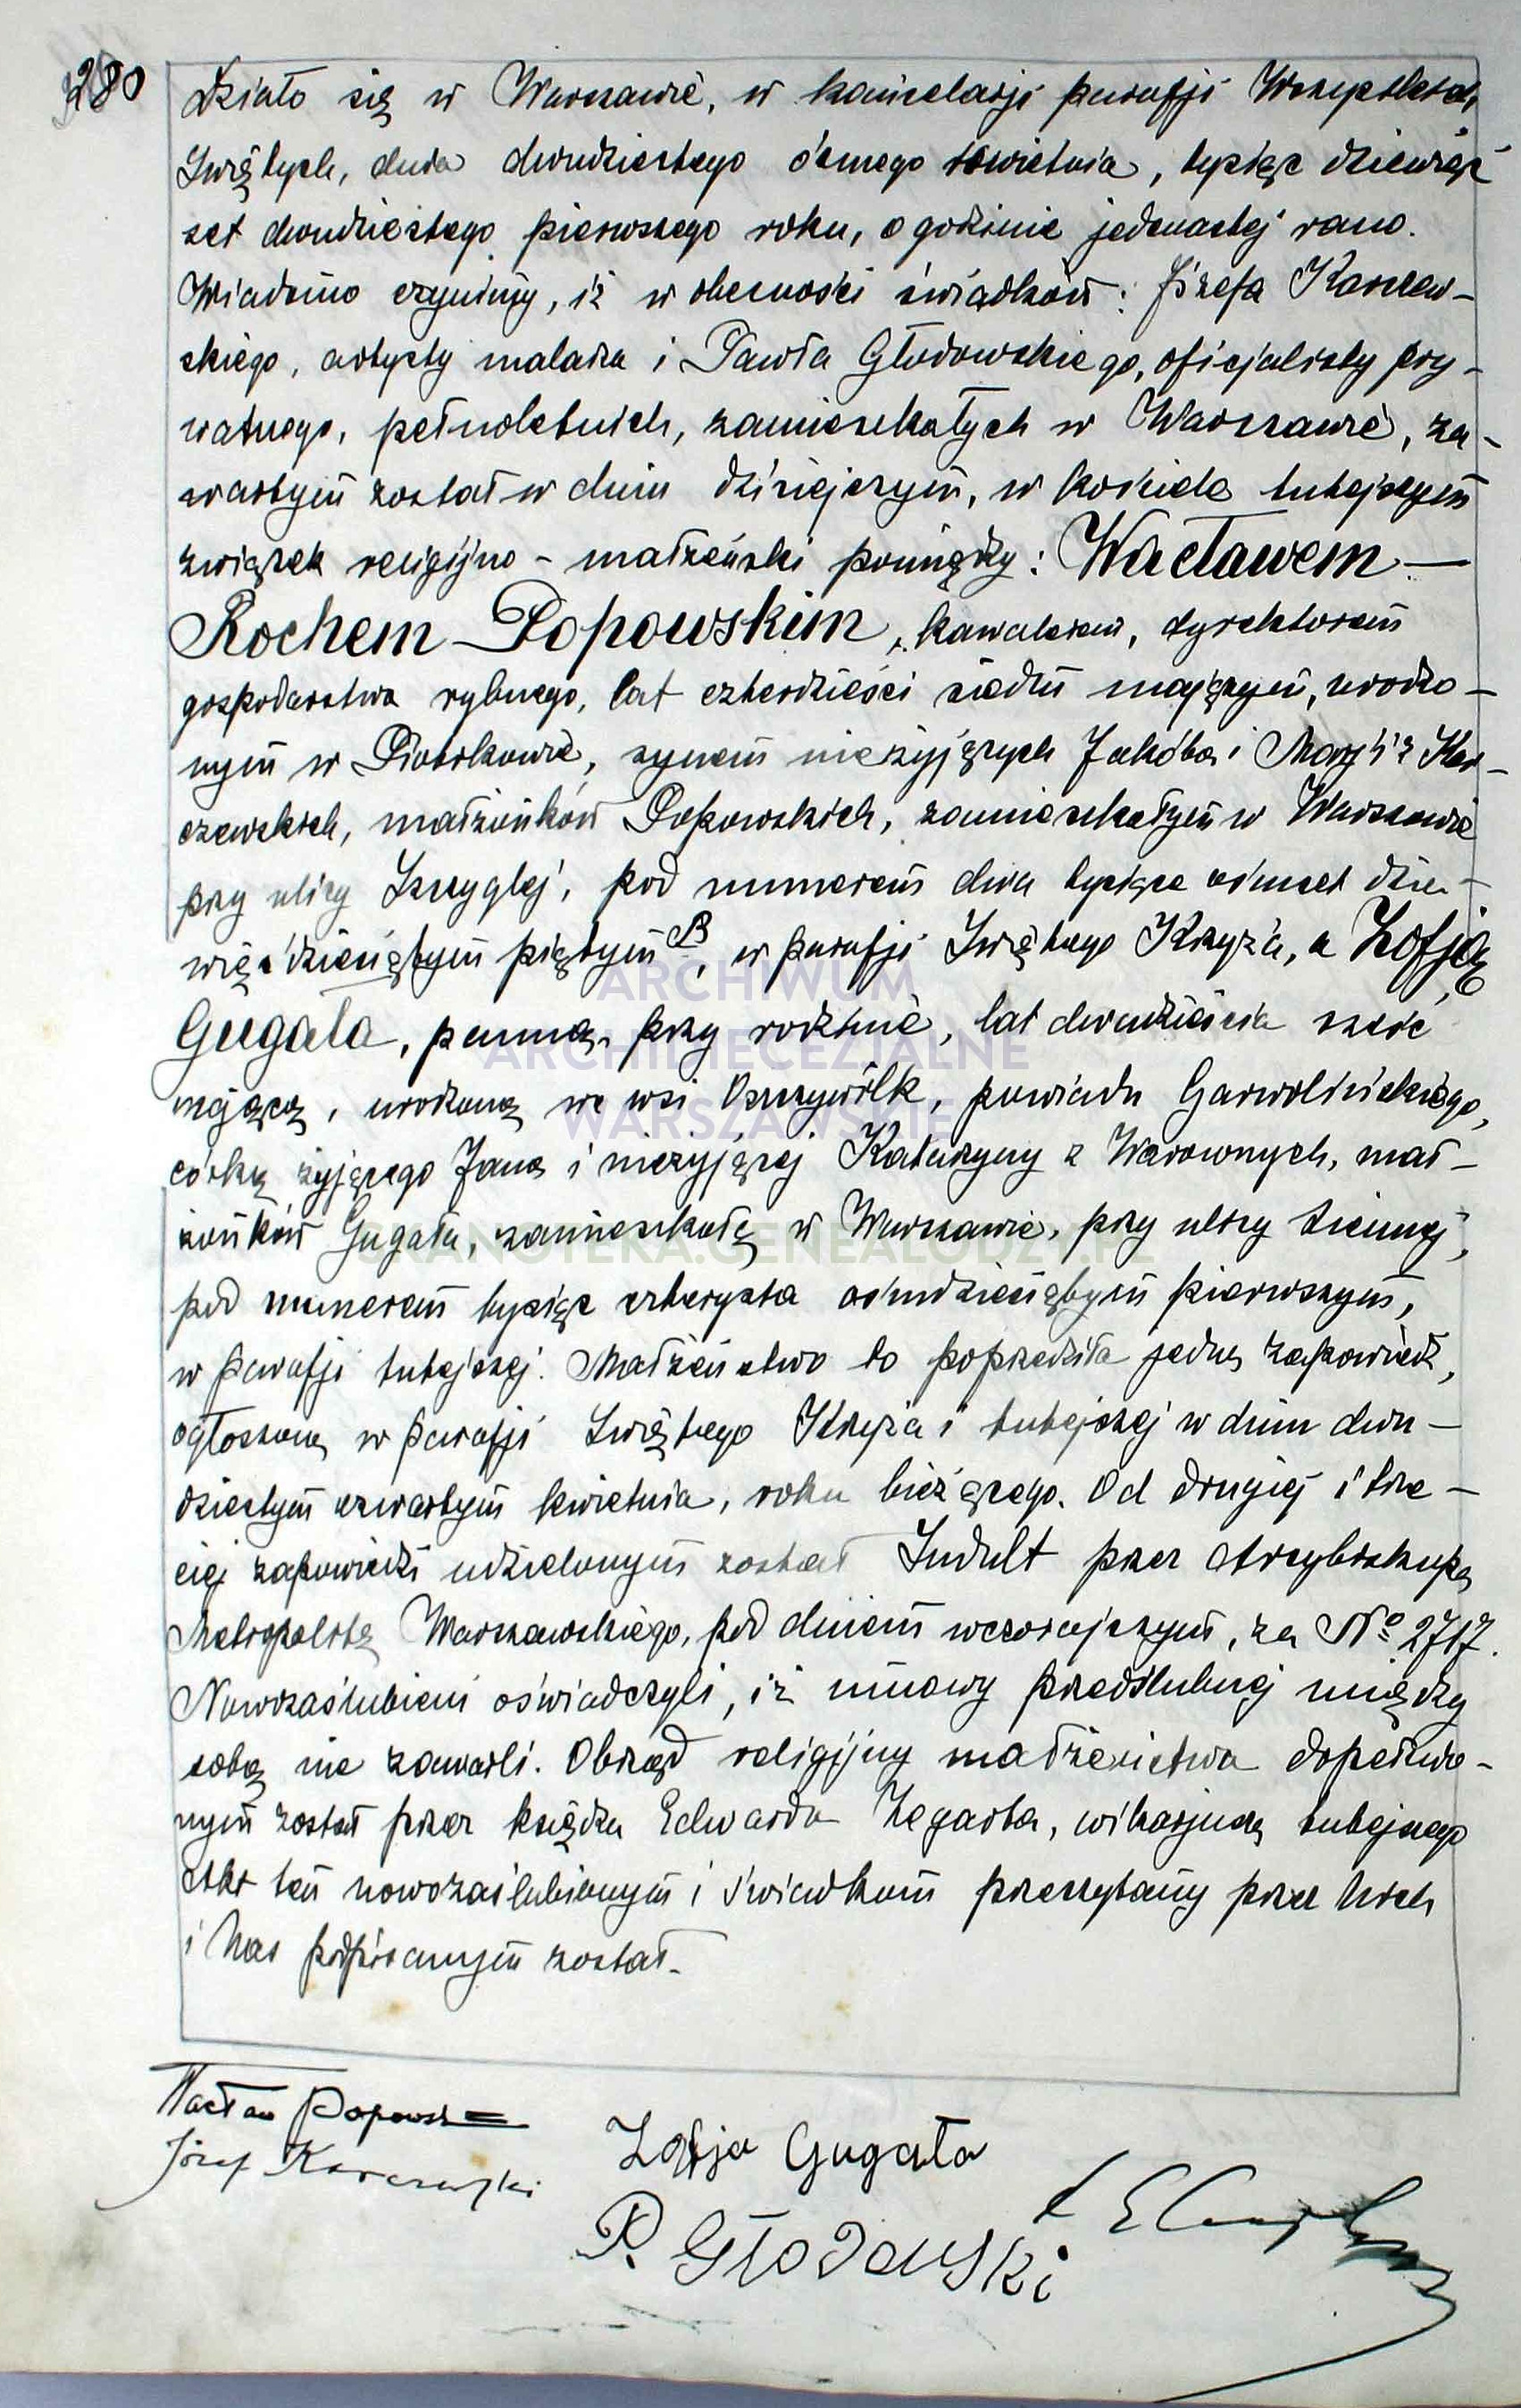 280
Działo się w Warszawie, w kancelarji parafji Wszystkich
Świętych, dnia dwudziestego ósmego kwietnia, tysiąc dziewięć
set dwudziestego pierwszego roku, o godzinie jedenastej rano.
Wiadomo czynimy, iż w obecności świadków: Józefa Karczew-
skiego, artysty malarza i Pawła Głodowskiego, oficjalisty pry-
watnego, pełnoletnich, zamieszkałych w Warszawie, za-
wartym został w dniu dzisiejszym, w kościele tutejszym
związek religijno-małżeński pomiędzy: Wacławem —
Rochem Popowskim, kawalerem, dyrektorem
gospodarstwa rybnego, lat czterdzieści siedm mającym, urodzo-
nym w Piotrkowie, synem nieżyjących Jakóba i Marji z Kar-
czewskich, małżonków Popowskich, zamieszkałym w Warszawie
przy ulicy Szczyglej, pod numerem dwa tysiące ośmset dzie-
więćdziesiątym piątym B, w parafji Świętego Krzyża, a Zofją
Gugała, panną, przy rodzinie, lat dwadzieścia sześć
mającą, urodzoną we wsi Oszczywilk, powiatu Garwolińskiego,
córką żyjącego Jana i nieżyjącej Katarzyny z Warownych, mał-
żonków Gugała, zamieszkałą w Warszawie, przy ulicy Siennej,
pod numerem tysiąc czterysta ośmdziesiątym pierwszym,
w parafji tutejszej. Małżeństwo to poprzedziła jedna zapowiedź,
ogłoszona w parafji Świętego Krzyża i tutejszej w dniu dwu-
dziestym czwartym kwietnia, roku bieżącego. Od drugiej i trze-
ciej zapowiedzi udzielonym został Indult przez Arcybiskupa
Metropolitę Warszawskiego, pod dniem wczorajszym, za № 2717.
Nowozaślubieni oświadczyli, iż umowy przedślubnej między
sobą nie zawarli. Obrząd religijny małżeństwa dopełnio-
nym został przez księdza Edwarda Zegarta, wikarjusza tutejszego
Akt ten nowozaślubionym i świadkom przeczytany przez Nich
i Nas podpisanym został.
Wacław Popowski
Józef Karczewski
Zofja Gugała
P. Głodowski
ARCHIWUM
ARCHIDIECEZJALNE
WARSZAWSKIE
SKANOTEKA.GENEALODZY.PL